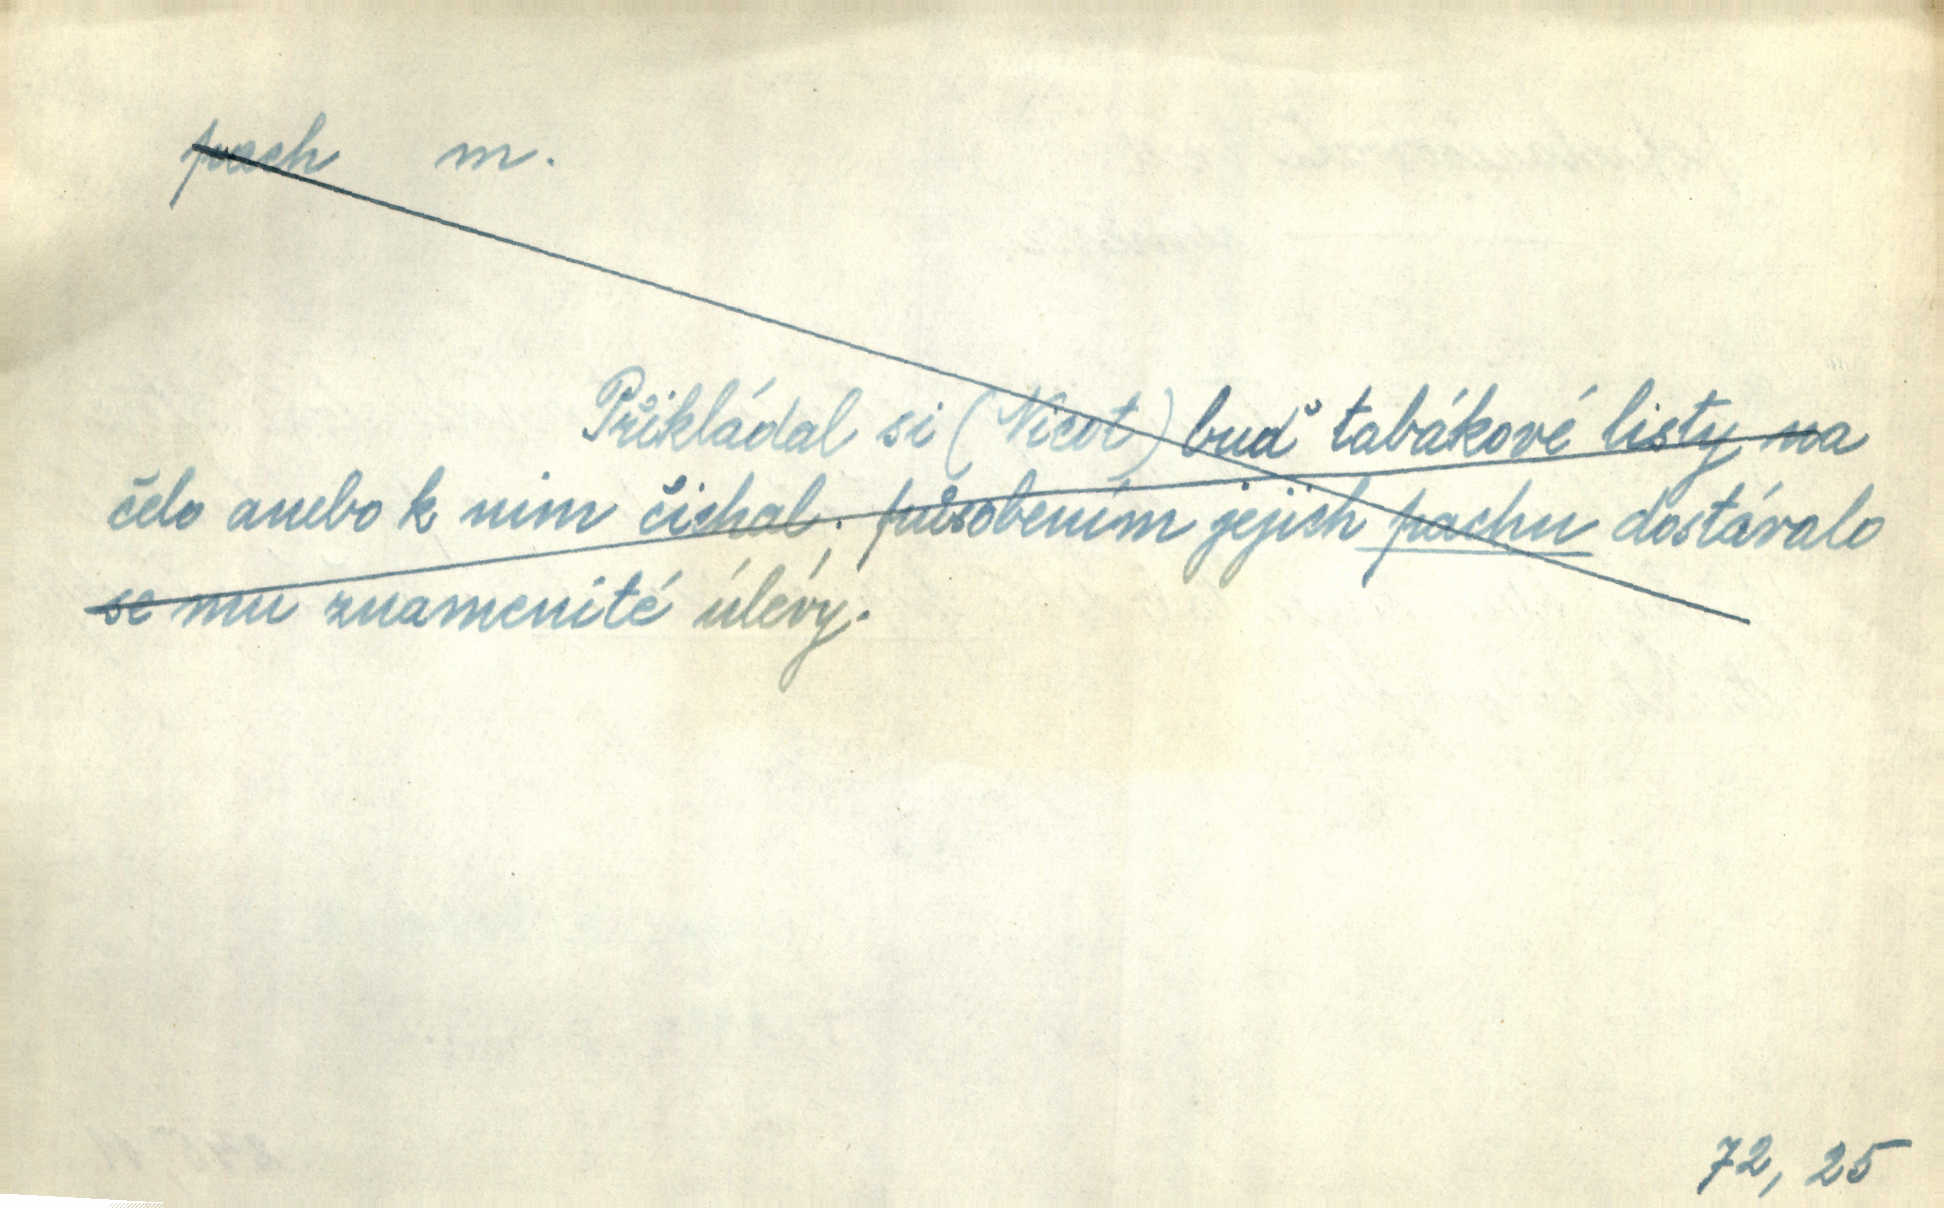 pach m.
Přikládal si (Nicot) buď tabákové listy na
čelo anebo k nim čichal; působením jejich pachu dostávalo
se mu znamenité úlevy.
72, 25